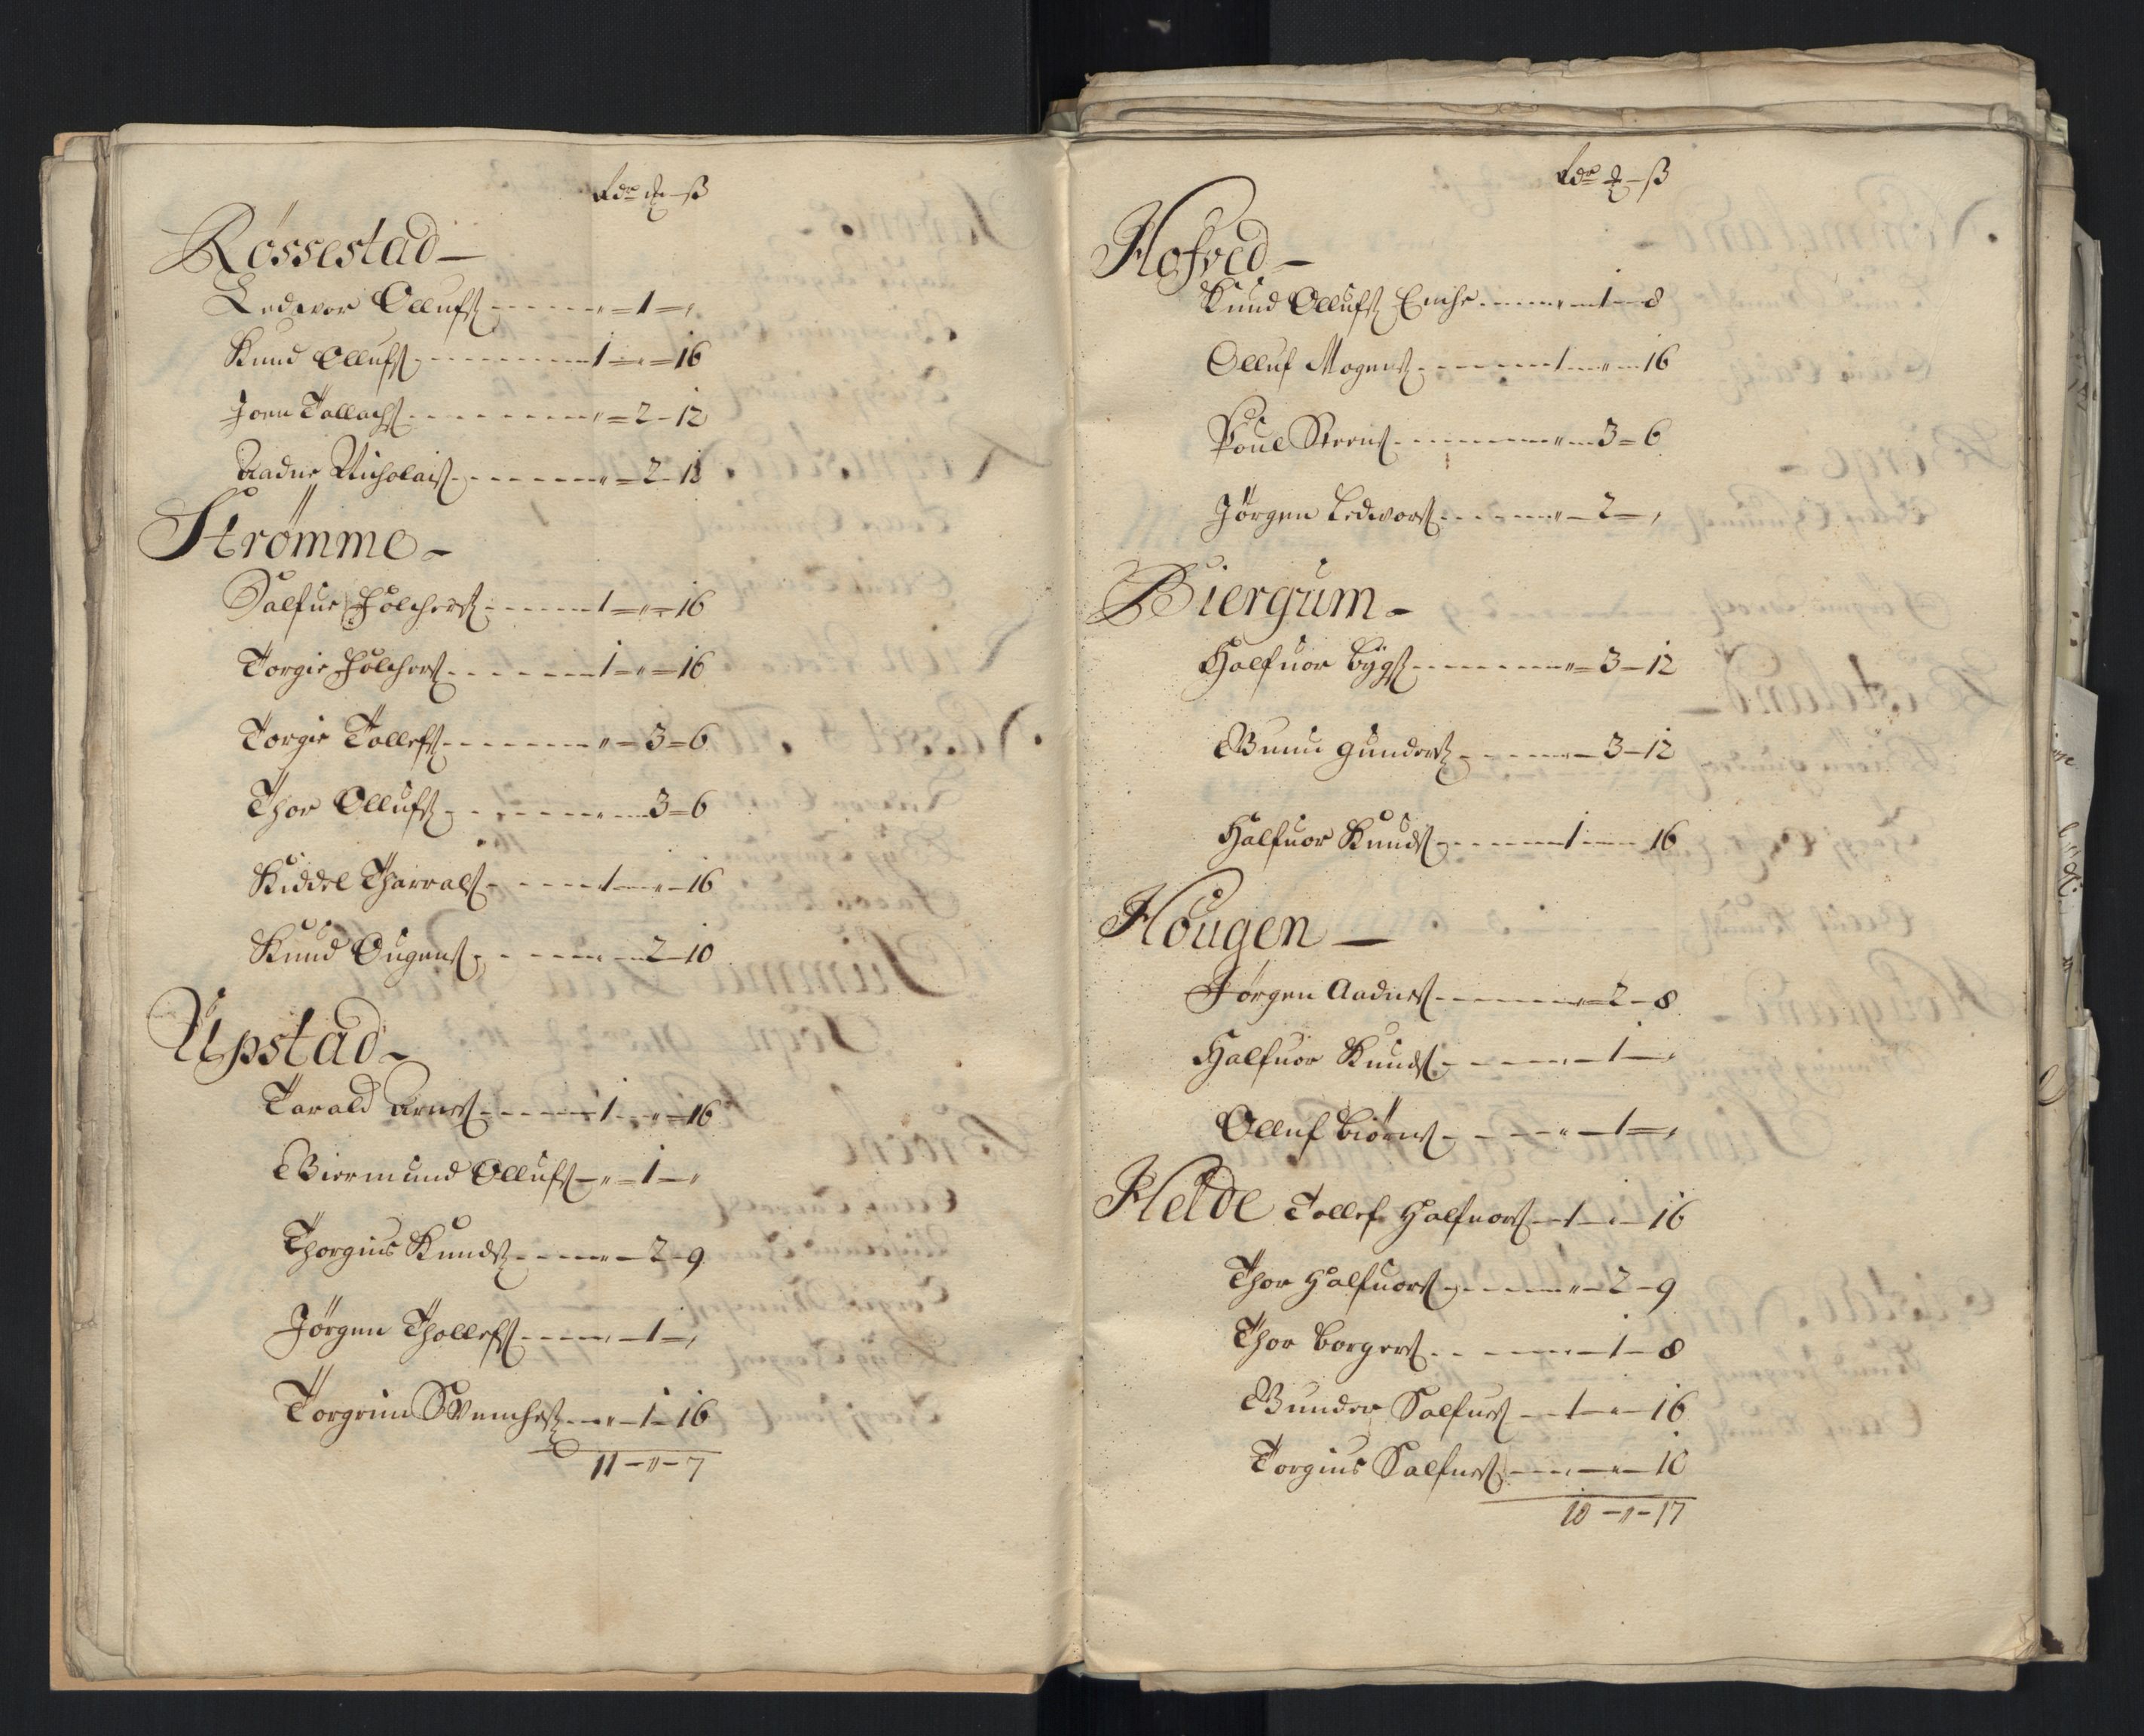 Rdr – ß
Røssestad –
Ledwor Ollufs: – – – „ = 1 = „
Knud Ollufs: – – – 1 = „ = 16
Joen Tallachs: – – – „ = 2 – 12
Aadne Nicholais: – – – „ = 2 – 12
Strømme –
Salfue Folchers: – – – 1 = „ = 16
Torgie Folchers: – – – 1 = „ = 16
Torgie Tollefs: – – – „ = 3 = 6
Thor Ollufs: – – – „ – 3 = 6
Kiddel Tharrals: – – – 1 – „ – 16
Knud Ougens: – – – „ – 2 – 10
Upstad –
Tarald Arnes: – – – 1 – „ = 16
Giermund Ollufs – „ = 1 – „
Thorgius Knuds: – – – „ – 2 – 9
Jörgen Thollefs: – – – „ – 1 – „
Torgrim Svenches: – – „ – 1 – 16
11 – „ – 7
Rdr – ß
Hofved –
Knud Ollufs: Enche – – – „ – 1 – 8
Olluf Mogens: – – – 1 – „ – 16
Poul Steens: – – – „ – 3 = 6
Jörgen Ledwors: – – – „ – 2 – „
Biergum –
Halfuor Bÿgs: – – – „ = 3 – 12
Gunni gunders: – – – „ – 3 – 12
Halfuor Knuds: – – – 1 – „ – 16
Hougen –
Jörgen Aadnes: – – – „ = 2 – 8
Halfuor Knuds: – – – „ – 1 – „
Olluf biörns: – – – „ – 1 = „
Helde Tollef Halfuors: – 1 – „ – 16
Thor Halfuors: – – – „ – 2 – 9
Thor borgers: – – – „ – 1 – 8
Gunder Salfues: – 1 – „ – 16
Torgius Salfues: – – „ – „ – 10
10 – „ – 17